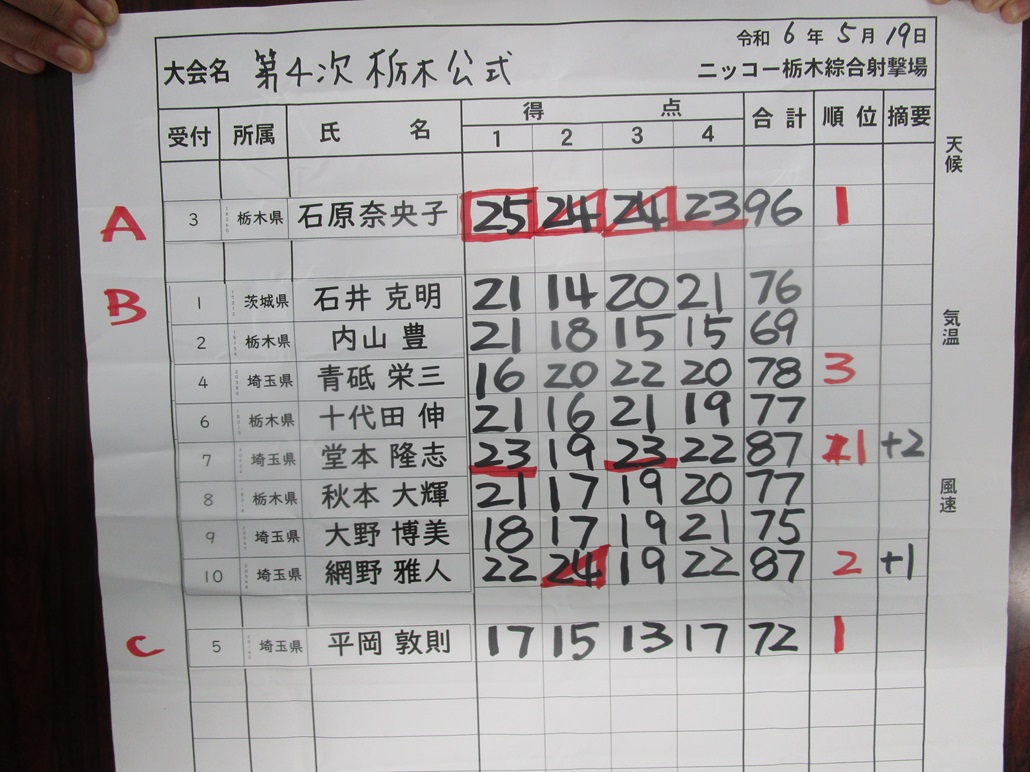 令和 6 年 5 月 19 日
大会名 第4次 栃木公式 ニッコー栃木綜合射撃場
受付 所属 氏 名 得 点 合 計 順 位 摘要
1 2 3 4
天候
A 3 栃木県 石原奈央子 25 24 24 23 96 1
B 1 茨城県 石井 克明 21 14 20 21 76
気温
2 栃木県 内山 豊 21 18 15 15 69
4 埼玉県 青砥 栄三 16 20 22 20 78 3
6 栃木県 十代田 伸 21 16 21 19 77
7 埼玉県 堂本 隆志 23 19 23 22 87 1 +2
風速
8 栃木県 秋本 大輝 21 17 19 20 77
9 埼玉県 大野 博美 18 17 19 21 75
10 埼玉県 網野 雅人 22 24 19 22 87 2 +1
C 5 埼玉県 平岡 敦則 17 15 13 17 72 1